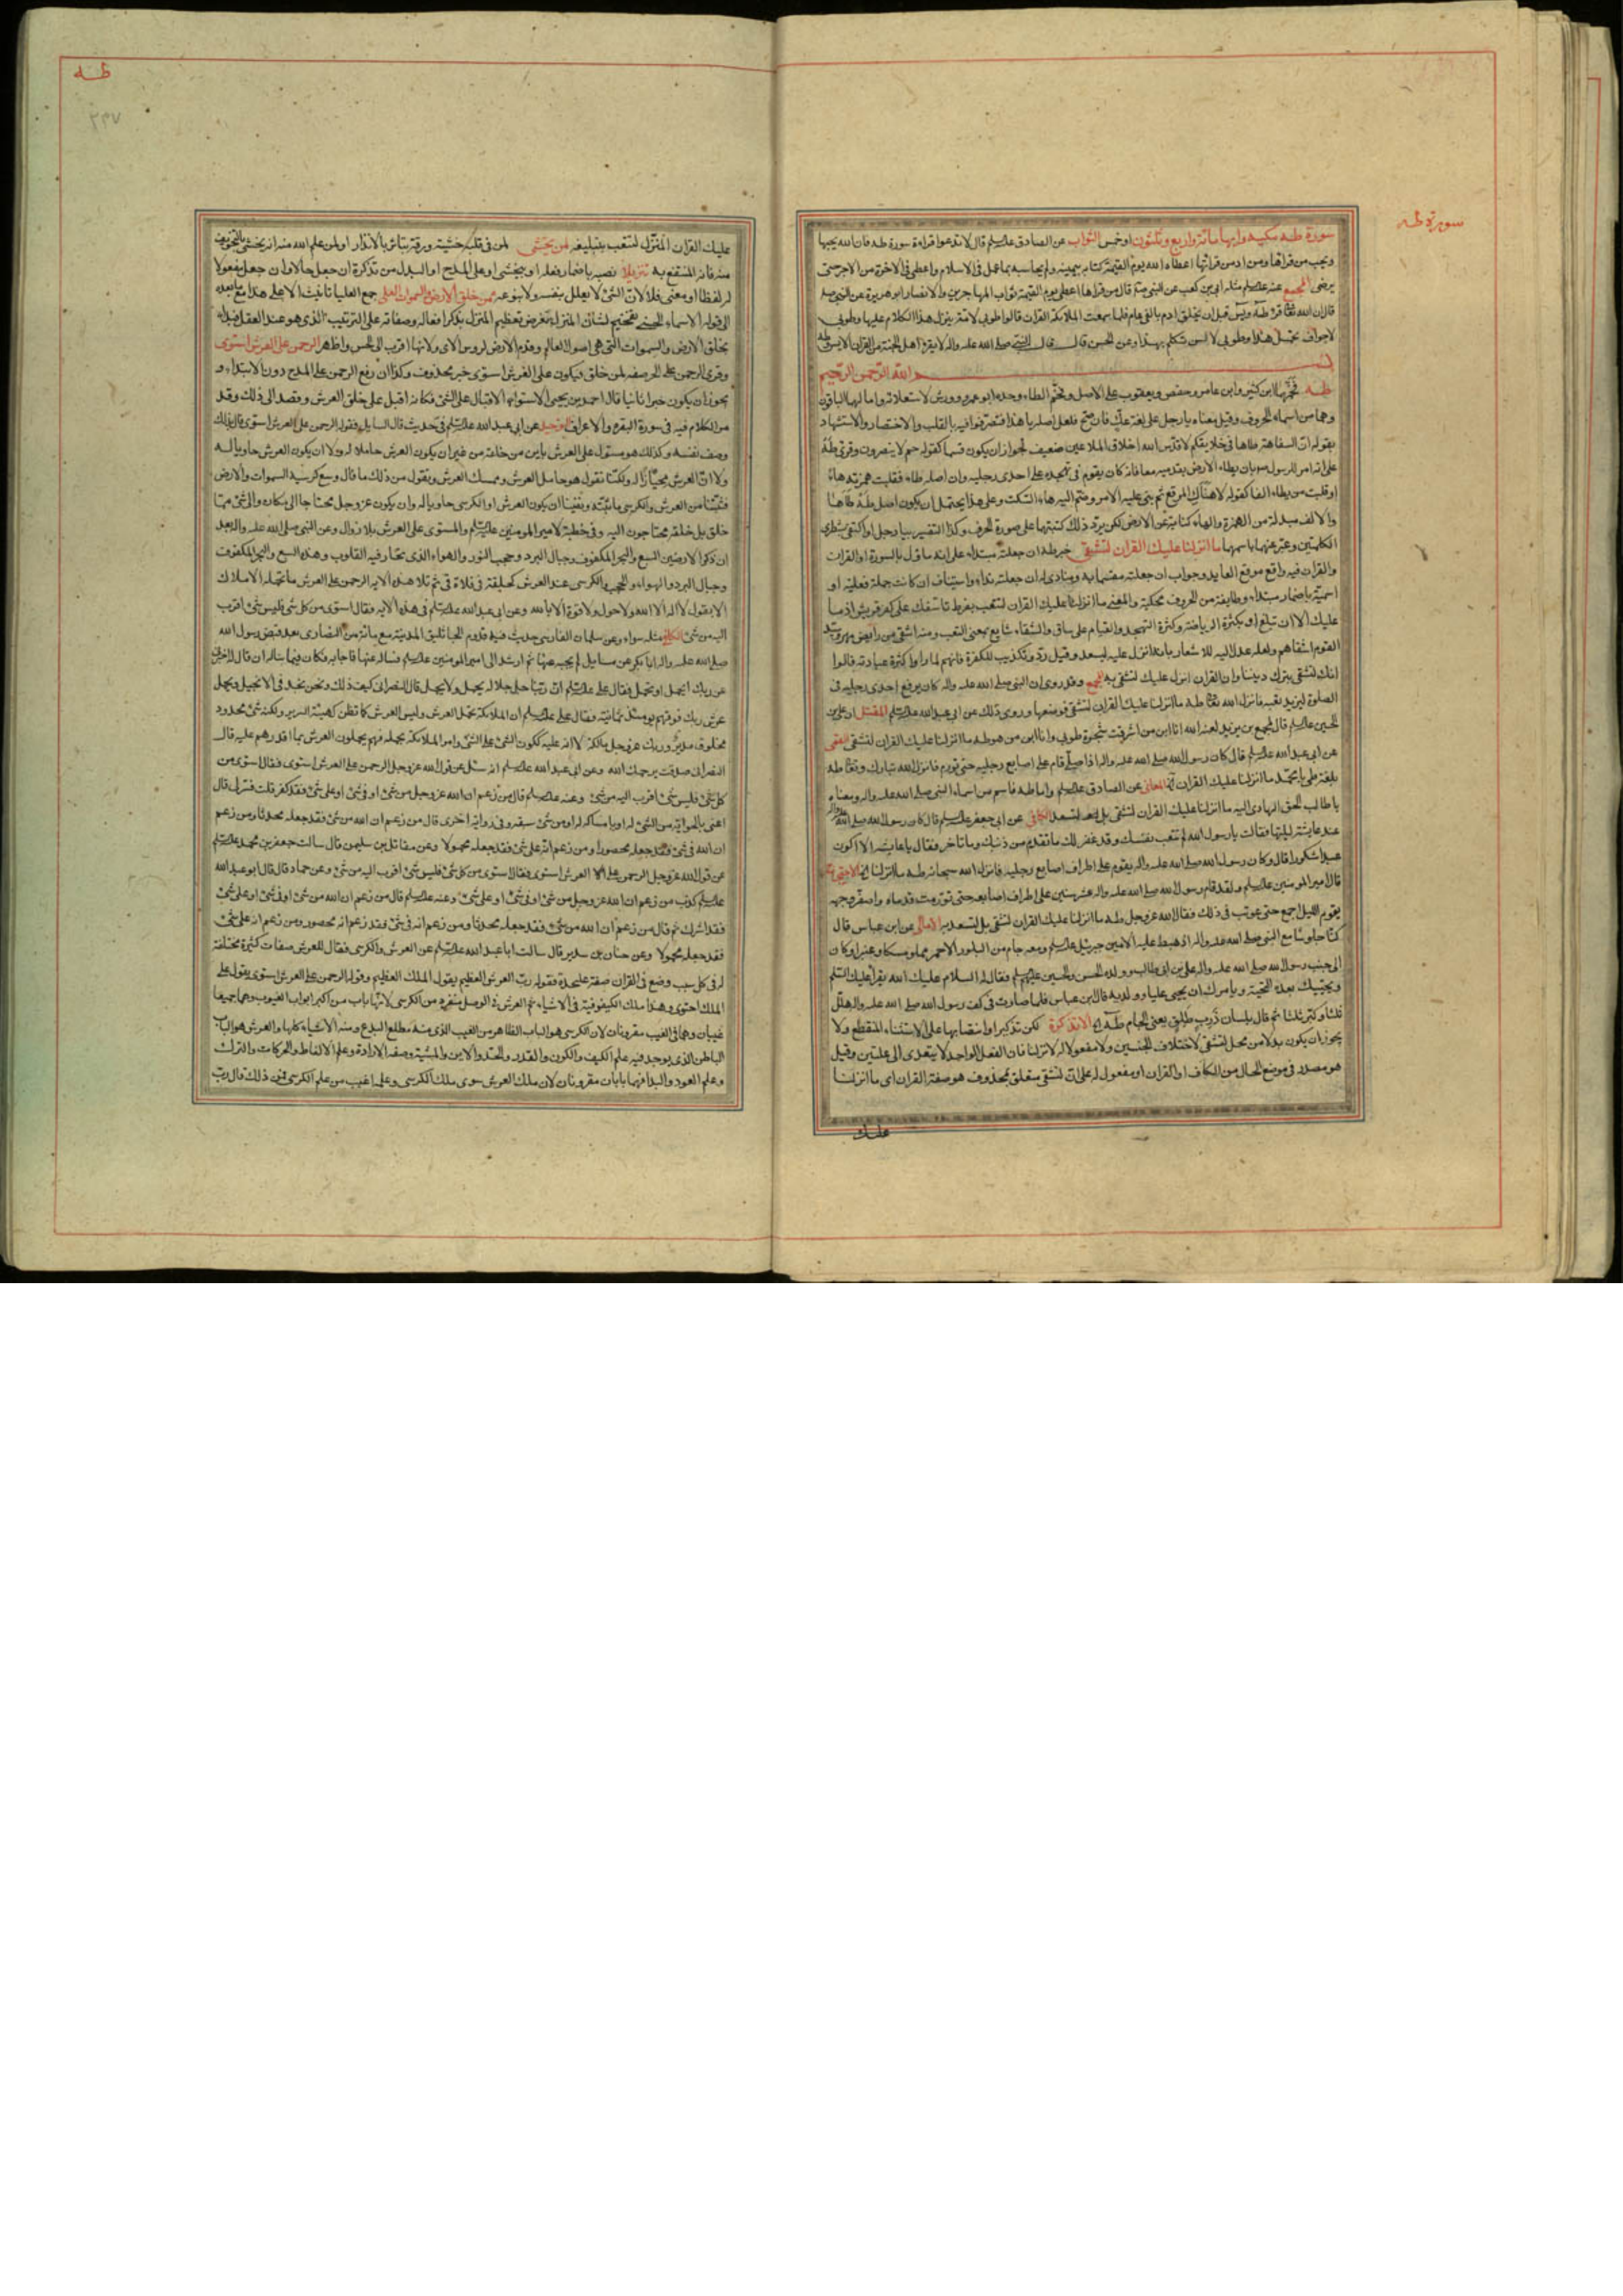 سورة طه
سورة طه مكية وايها مائة واربع وثلثون او خمس الثواب عن الصادق عليه السلام قال لا تدعوا قراءة سورة طه فان الله يحبها
ويحب من قراها ومن ادمن قراتها اعطاه الله يوم القيمة كتابه بيمينه ولم يحاسبه بما عمل في الاسلام واعطي في الاخرة من الاجر حتى
يرضى المجمع عنه عليه السلام مثله ابي بن كعب عن النبي قال من قراها اعطي يوم القيمة ثواب المهاجرين والانصار ابو هريرة عن النبي
قال ان الله تعالى قرا طه ويس قبل ان يخلق ادم بالفي عام فلما سمعت الملائكة القران قالوا طوبى لامة ينزل هذا الكلام عليها وطوبى
لاجواف تحمل هذا وطوبى لالسن تتكلم بهذا وعن الحسن قال قال النبي صلى الله عليه واله لا يقرا اهل الجنة من القران الا يس وطه
بسم الله الرحمن الرحيم
طه فخمها ابن كثير وابن عامر وحفص ويعقوب على الاصل وفخم الطاء وحده ابو عمرو وورش لاستعلائه وامالهما الباقون
وهما من اسماء الحروف وقيل معناه يا رجل على لغة عك فان صح فلعل اصله يا هذا فتصرفوا فيه بالقلب والاختصار والاستشهاد
بقوله ان السفاهة طاها في خلايقكم لا قدس الله اخلاق الملاعين ضعيف لجواز ان يكون قسما كقوله حم لا ينصرون وقرئ طه
على انه امر للرسول بان يطاء الارض بقدميه معا فانه كان يقوم في تهجده على احدى رجليه وان اصله طاء فقلبت همزته هاء
او قلبت من يطاء الفا كقوله لا هناك المرتع ثم بني عليه الامر وضم اليه هاء السكت وعلى هذا يحتمل ان يكون اصل طه طاها
والالف مبدلة من الهمزة والهاء كناية عن الارض لكن يرد ذلك كتبتهما على صورة الحرف وكذا التفسير بيا رجل او اكتفى بشطري
الكلمتين وعبر عنهما باسمهما ما انزلنا عليك القران لتشقى خبر طه ان جعلته مبتداء على انه ماول بالسورة او القران
والقران فيه واقع موقع العايد وجواب ان جعلته مقسما به ومنادى له ان جعلته نداء واستيناف ان كانت جملة فعلية او
اسمية باضمار مبتداء وطايفة من الحروف محكية والمعنى ما انزلنا عليك القران لتتعب بفرط تاسفك على كفر قريش اذ ما
عليك الا ان تبلغ او بكثرة الرياضة وكثرة التهجد والقيام على ساق والشقاء شايع بمعنى التعب ومنه اشقى من رايض مهر وسيد
القوم اشقاهم ولعله عدل اليه للاشعار بانه انزل عليه ليسعد وقيل رد وتكذيب للكفرة فانهم لما راوا كثرة عبادته قالوا
انك لتشقى بترك ديننا وان القران انزل عليك لتشقى به المجمع وقد روي ان النبي صلى الله عليه واله كان يرفع احدى رجليه في
الصلوة ليزيد تعبه فانزل الله تعالى طه ما انزلنا عليك القران لتشقى فوضعها وروي ذلك عن ابي عبد الله عليه السلام المقتل ان علي بن
الحسين عليه السلام قال لمجمع بن يزيد لعنه الله انا ابن من اشرقت شجرة طوبى وانا ابن من هو طه ما انزلنا عليك القران لتشقى القمي
عن ابي عبد الله عليه السلام قال كان رسول الله صلى الله عليه واله اذا صلى قام على اصابع رجليه حتى تورم فانزل الله تبارك وتعالى طه
بلغة طي يا محمد ما انزلنا عليك القران المعاني عن الصادق عليه السلام واما طه فاسم من اسماء النبي صلى الله عليه واله ومعناه
يا طالب الحق الهادي اليه ما انزلنا عليك القران لتشقى بل لتسعد الكافي عن ابي جعفر عليه السلام قال كان رسول الله صلى الله عليه واله
عند عايشة ليلتها فقالت يا رسول الله لم تتعب نفسك وقد غفر لك ما تقدم من ذنبك وما تاخر فقال يا عايشه الا اكون
عبدا شكورا قال وكان رسول الله صلى الله عليه واله يقوم على اطراف اصابع رجليه فانزل الله سبحانه طه ما انزلنا الاحتجاج
قال امير المومنين عليه السلام ولقد قام رسول الله صلى الله عليه واله عشر سنين على اطراف اصابعه حتى تورمت قدماه واصفر وجهه
يقوم الليل اجمع حتى عوتب في ذلك فقال الله عز وجل طه ما انزلنا عليك القران لتشقى بل لتسعد به الامالي عن ابن عباس قال
كنا جلوسا مع النبي صلى الله عليه واله اذ هبط عليه الامين جبرئيل عليه السلام ومعه جام من البلور الاحمر مملو مسكا وعنبرا وكان
الى جنب رسول الله صلى الله عليه واله علي بن ابي طالب وولده الحسن والحسين عليهم السلام فقال له السلام عليك الله يقرا عليك السلم
ويحييك بهذه التحية ويامرك ان تحيي عليا وولديه قال ابن عباس فلما صارت في كف رسول الله صلى الله عليه واله هلل
ثلثا وكبر ثلثا ثم قال بلسان ذرب طلق يعني الجام طه الا تذكرة لكن تذكيرا وانتصابها على الاستثناء المنقطع ولا
يجوز ان يكون بدلا من محل لتشقى لاختلاف الجنسين ولا مفعولا له لانزلنا فان الفعل الواحد لا يتعدى الى علتين وقيل
هو مصدر في موضع الحال من الكاف او القران او مفعول له على ان لتشقى متعلق بمحذوف هو صفة القران اي ما انزلنا
عليك
طه
٢٣٧
عليك القران المنزل لتتعب بتبليغه لمن يخشى لمن في قلبه خشية ورقة يتاثر بالانذار او لمن علم الله منه انه يخشى بالتخويف
منه فانه المنتفع به تنزيلا نصب باضمار فعله او بيخشى او على المدح او البدل من تذكرة ان جعل حالا وان جعل مفعولا
له لفظا او معنى فلا لان الشئ لا يعلل بنفسه ولا بنوعه ممن خلق الارض والسموات العلى جمع العليا تانيث الاعلى هذا مع ما بعده
الى قوله له الاسماء الحسنى تفخيم لشان المنزل بفرض تعظيم المنزل بذكر افعاله وصفاته على الترتيب الذي هو عند العقل فبدا
بخلق الارض والسموات التي هي اصول العالم وقدم الارض لروس الاى ولانها اقرب الى الحس واظهر الرحمن على العرش استوى
وقرئ الرحمن على الجر صفة لمن خلق فيكون على العرش استوى خبر محذوف وكذا ان رفع الرحمن على المدح دون الابتداء و
يجوز ان يكون خبرا ثانيا قال احمد بن يحيى الاستواء الاقبال على الشئ فكانه اقبل على خلق العرش وقصد الى ذلك وقد
مر الكلام فيه في سورة البقرة والاعراف التوحيد عن ابي عبد الله عليه السلام في حديث قال السايل فقوله الرحمن على العرش استوى قال بذلك
وصف نفسه وكذلك هو مستول على العرش باين من خلقه من غير ان يكون العرش حاملا له ولا ان يكون العرش حاويا له
ولا ان العرش محتازا له ولكنا نقول هو حامل العرش وممسك العرش ونقول من ذلك ما قال وسع كرسيه السموات والارض
فثبتنا من العرش والكرسي ما ثبته ونفينا ان يكون العرش او الكرسي حاويا له وان يكون عز وجل محتاجا الى مكان والى شئ مما
خلق بل خلقه محتاجون اليه وفي خطبة لامير المومنين عليه السلام والمستوى على العرش بلا زوال وعن النبي صلى الله عليه واله بعد
ان ذكر الارضين السبع والبحر المكفوف وجبال البرد وحجب النور والهواء الذي تحار فيه القلوب وهذه السبع والبحر المكفوف
وجبال البرد والهواء والحجب والكرسي عند العرش كحلقة في فلاة قي ثم تلا هذه الاية الرحمن على العرش ما تحمله الاملاك
الا بقول لا اله الا الله ولا حول ولا قوة الا بالله وعن ابي عبد الله عليه السلام في هذه الاية فقال استوى من كل شئ فليس شئ اقرب
اليه من شئ الكافي مثله سواء وعن سلمان الفارسي حديث فيه قدوم الجاثليق المدينة مع مائة من النصارى بعد قبض رسول الله
صلى الله عليه واله ابا بكر عن مسايل لم يجبه عنها ثم ارشد الى امير المومنين عليه السلام فساله عنها فاجابه وكان فيما ساله ان قال له اخبرني
عن ربك ايحمل او يحمل فقال علي عليه السلام ان ربنا جل جلاله يحمل ولا يحمل قال النصراني كيف ذلك ونحن نجد في الانجيل ويحمل
عرش ربك فوقهم يومئذ ثمانية وفقال علي عليه السلام ان الملائكة تحمل العرش وليس العرش كما تظن كهيئة السرير ولكنه شئ محدود
مخلوق مدبر وربك عز وجل مالكه لا انه عليه ككون الشئ على الشئ وامر الملائكة بحمله فهم يحملون العرش بما اقدرهم عليه قال
النصراني صدقت يرحمك الله وعن ابي عبد الله عليه السلام انه سئل عن قول الله عز وجل الرحمن على العرش استوى فقال استوى من
كل شئ فليس شئ اقرب اليه من شئ وعنه عليه السلام قال من زعم ان الله عز وجل من شئ او في شئ او على شئ فقد كفر قلت فسر لي قال
اعني بالحواية من الشئ له او بامساك له او من شئ سبقه وفي رواية اخرى قال من زعم ان الله من شئ فقد جعله محدثا ومن زعم
ان الله في شئ فقد جعله محصورا ومن زعم انه على شئ فقد جعله محمولا وعن مقاتل بن سليمن قال سالت جعفر بن محمد عليه السلام
عن قول الله عز وجل الرحمن على العرش استوى فقال استوى من كل شئ فليس شئ اقرب اليه من شئ وعن حماد قال قال ابو عبد الله
عليه السلام كذب من زعم ان الله عز وجل من شئ او في شئ او على شئ وعنه عليه السلام قال من زعم ان الله من شئ او في شئ او على شئ
فقد اشرك ثم قال من زعم ان الله من شئ فقد جعله محدثا ومن زعم انه في شئ فقد زعم انه محصور ومن زعم انه على شئ
فقد جعله محمولا وعن حنان بن سدير قال سالت ابا عبد الله عليه السلام عن العرش والكرسي فقال للعرش صفات كثيرة مختلفة
له في كل سبب وضع في القران صفة على حدة فقوله رب العرش العظيم يقول الملك العظيم وقوله الرحمن على العرش استوى يقول على
الملك احتوى وهذا ملك الكيفوفية في الاشياء ثم العرش في الوصل منفرد من الكرسي لانهما بابان من اكبر ابواب الغيوب وهما جميعا
غيبان وهما في الغيب مقرونان لان الكرسي هو الباب الظاهر من الغيب الذي منه مطلع البدع ومنه الاشياء كلها والعرش هو الباب
الباطن الذي يوجد فيه علم الكيف والكون والقدر والحد والاين والمشية وصفة الارادة وعلم الالفاظ والحركات والترك
وعلم العود والبدا فهما بابان مقرونان لان ملك العرش سوى ملك الكرسي وعلمه اغيب من علم الكرسي فمن ذلك قال رب